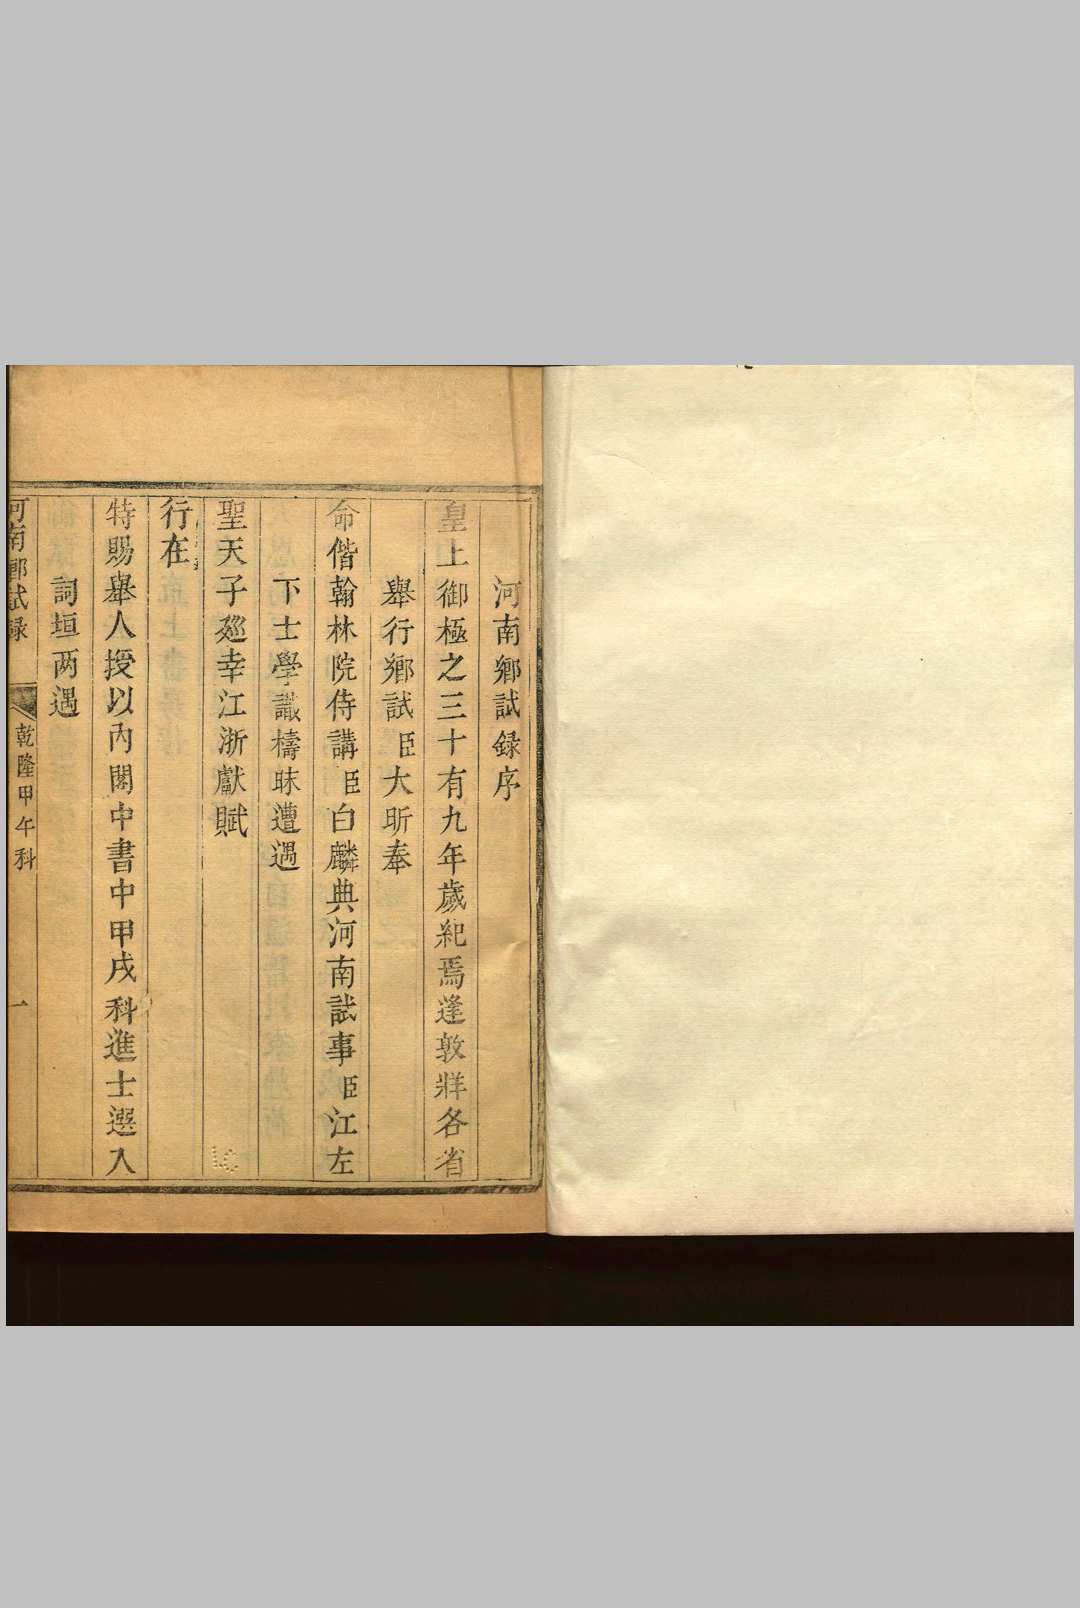 河南鄉試録序
皇上御極之三十有九年歲紀焉逢敦牂各省
舉行鄉試臣大昕奉
命偕翰林院侍講臣白麟典河南試事臣江左
下士學識檮昧遭遇
聖天子廵幸江浙獻賦
行在
特賜舉人授以內閣中書中甲戌科進士選入
詞垣两遇
河南鄉試録 乾隆甲午科 一